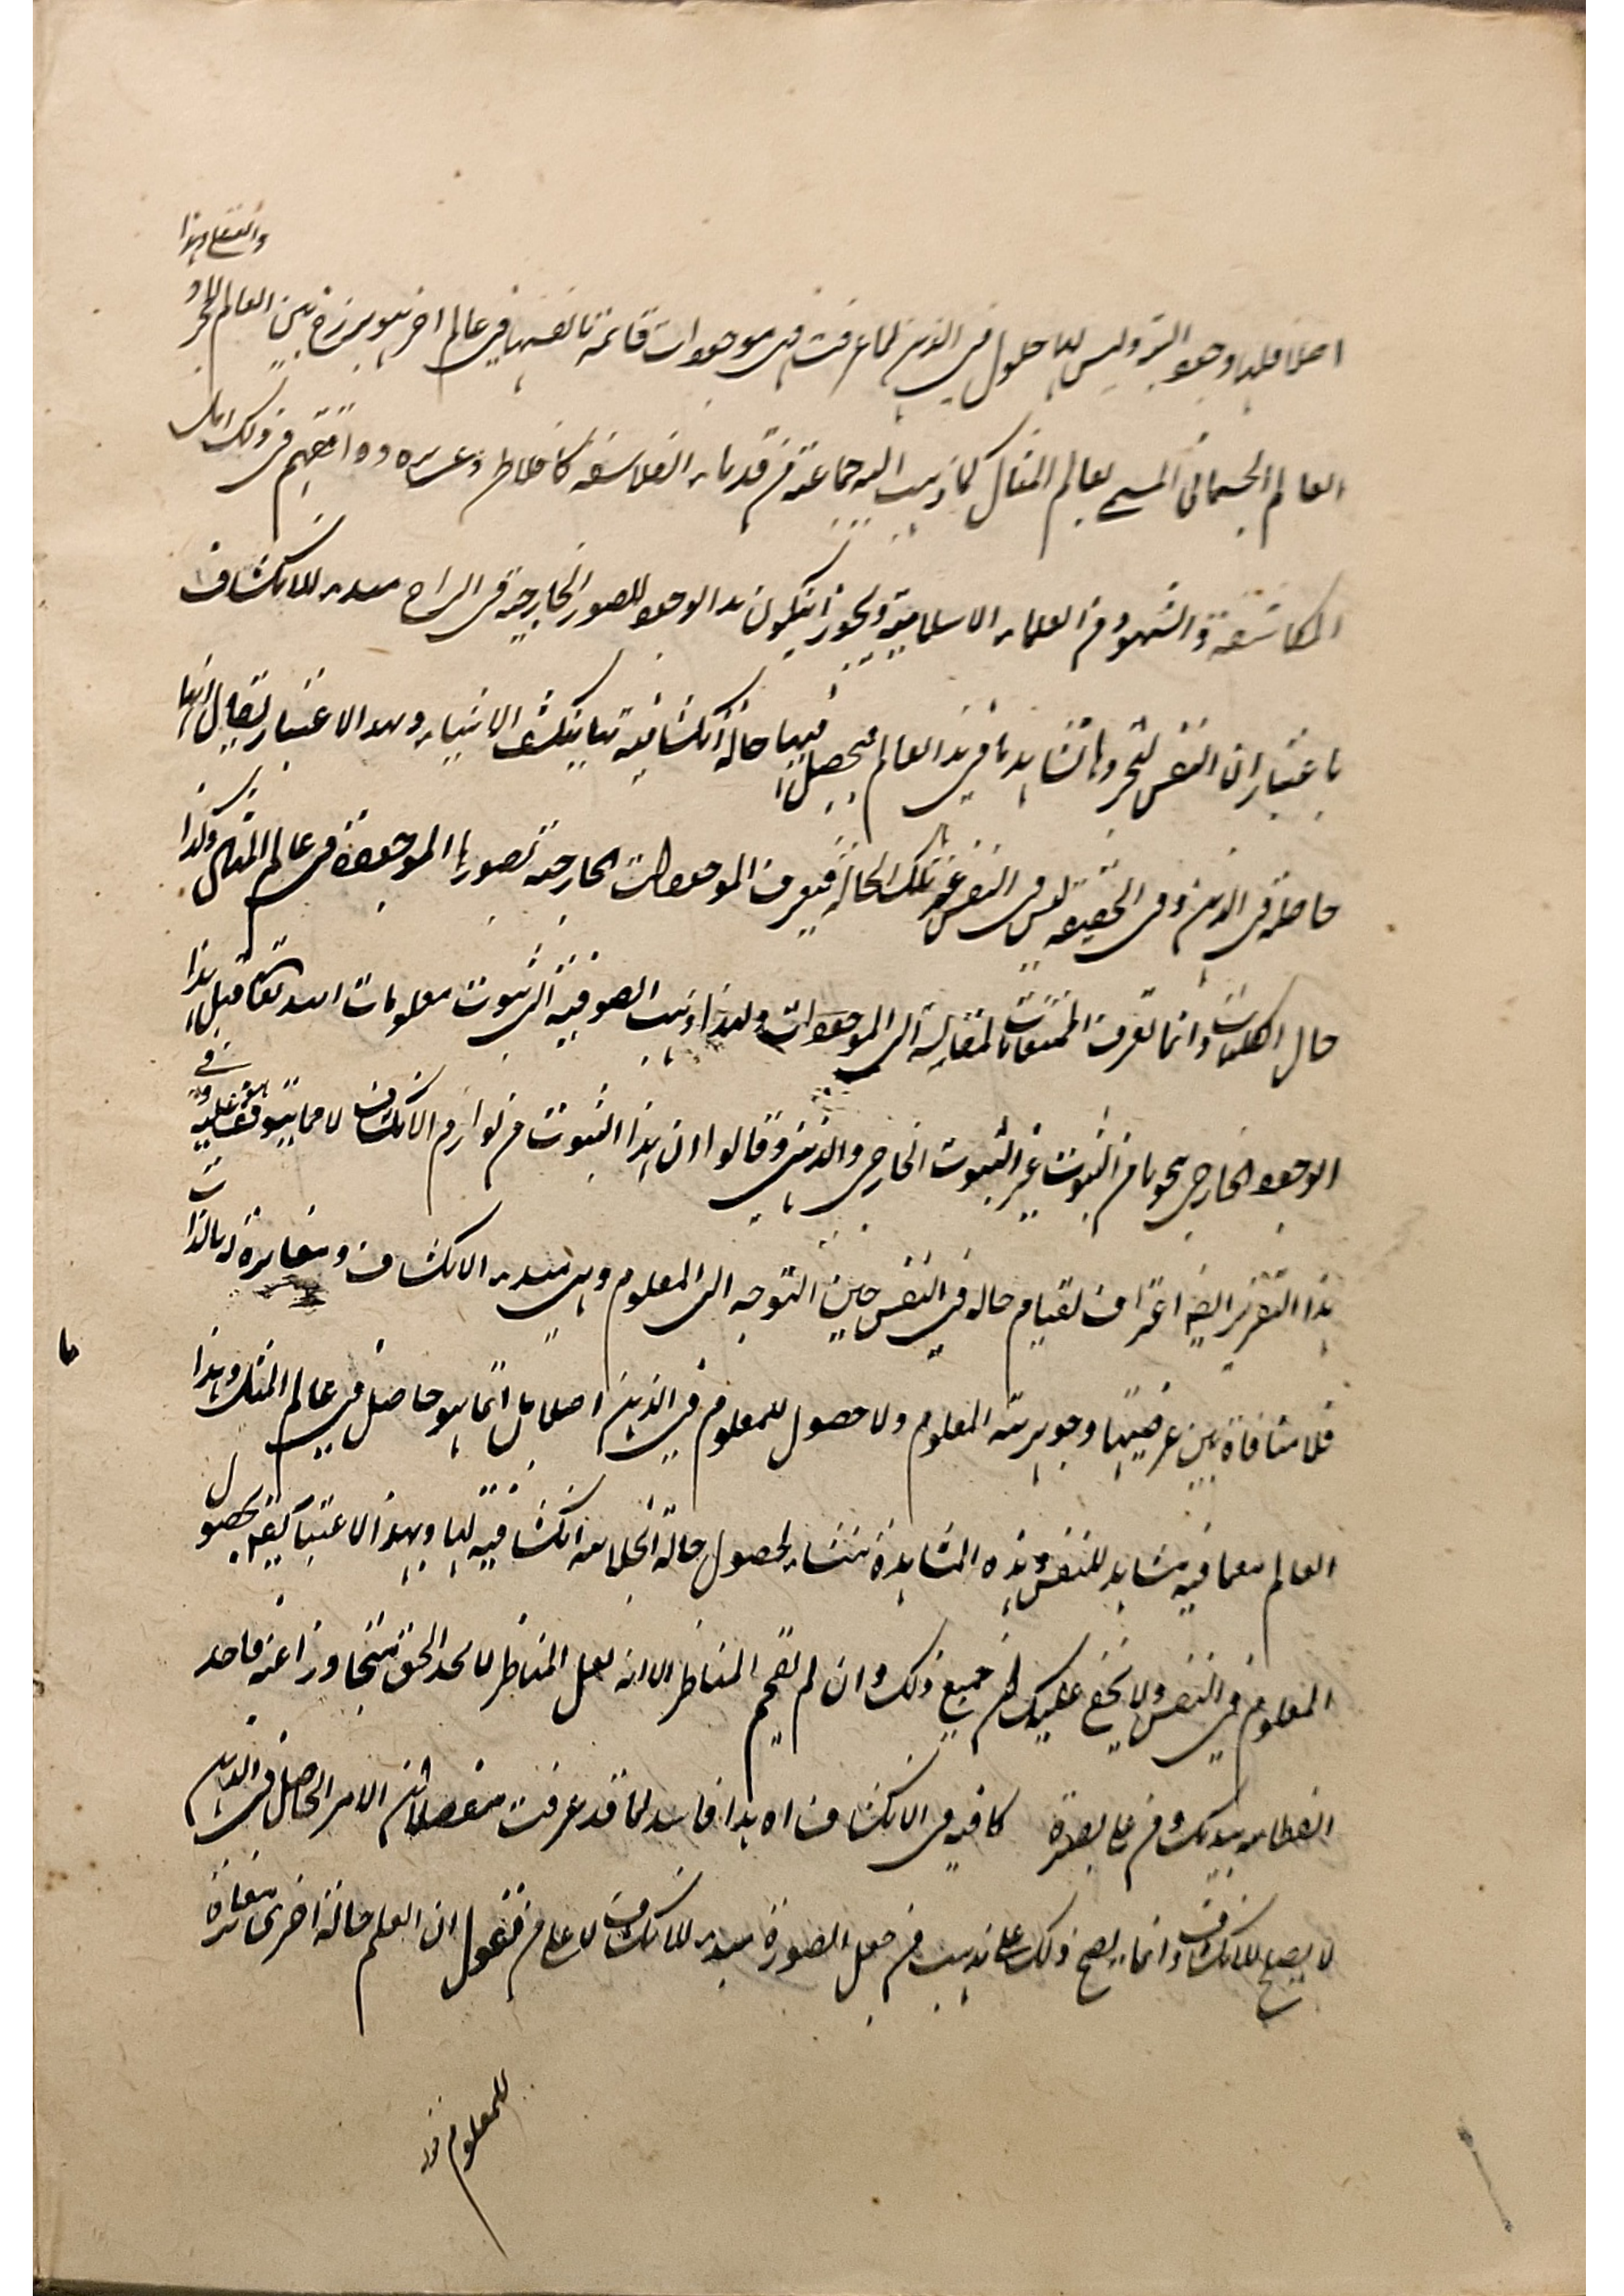 اصلا فلها وجود البتة وليس لها حلول في الذهن لما عرفت فهي موجودات قائمة بانفسها في عالم اخر هو برزخ بين العالم المجرد و
العالم الجسماني المسمى بعالم المثال كما ذهب اليه جماعة من قدماء الفلاسفة كافلاطن وغيره ووافقهم في ذلك اهل
المكاشفة والشهود من العلماء الاسلامية ويجوز ان يكون هذا الوجود للصور الخارجة في المراح مبدء للانكشاف
باعتبار ان النفس لتجردها تشاهد ما في هذا العالم فيحصل فيها حالة انكشافية بها ينكشف الاشياء وبهذا الاعتبار يقال انها
حاصلة في الذهن وفي الحقيقة ليس في النفس غير تلك الحالة فيعرف الموجودات الخارجة بصورها الموجودة في عالم المثال وكذا
حال الكليات وانما تعرف الممتنعات لمقايسة الى الموجودات ولهذا ذهب الصوفية الى ثبوت معلومات الله تعالى قبل هذا
الوجود الخارجي نحوا من الثبوت غير الثبوت الخارجي والذهني وقالوا ان هذا الثبوت من لوازم الانكشاف لا مما يتوقف هو عليه وفي
هذا التقرير ايضا اعتراف لقيام حالة في النفس حين التوجه الى المعلوم وهي مبدء الانكشاف ومغايرة له بالذات
فلا منافاة بين عرضيتها وجوهرية المعلوم ولا حصول للمعلوم في الذهن اصلا بل انما هو حاصل في عالم المثل وهذا
العالم بما فيه مشاهد للنفس وهذه المشاهدة منشاء لحصول حالة انجلائية انكشافية لها وبهذا الاعتبار يقه بحصول
المعلوم في النفس ولا يخفى عليك ان جميع ذلك وان لم يقحم المناظر الا انه لعل المناظر لا يجد الحق متجاوزا عنه فاحد
بيديك وكن على بصيرة كافية في الانكشاف اه هذا فاسد لما قد عرفت مفصلا ان الامر الحاصل في الذهن
لا يصلح للانكشاف وانما يصح ذلك على مذهب من جعل الصورة مبدء للانكشاف لا على من يقول ان العلم حالة اخرى مغايرة
للمعلوم